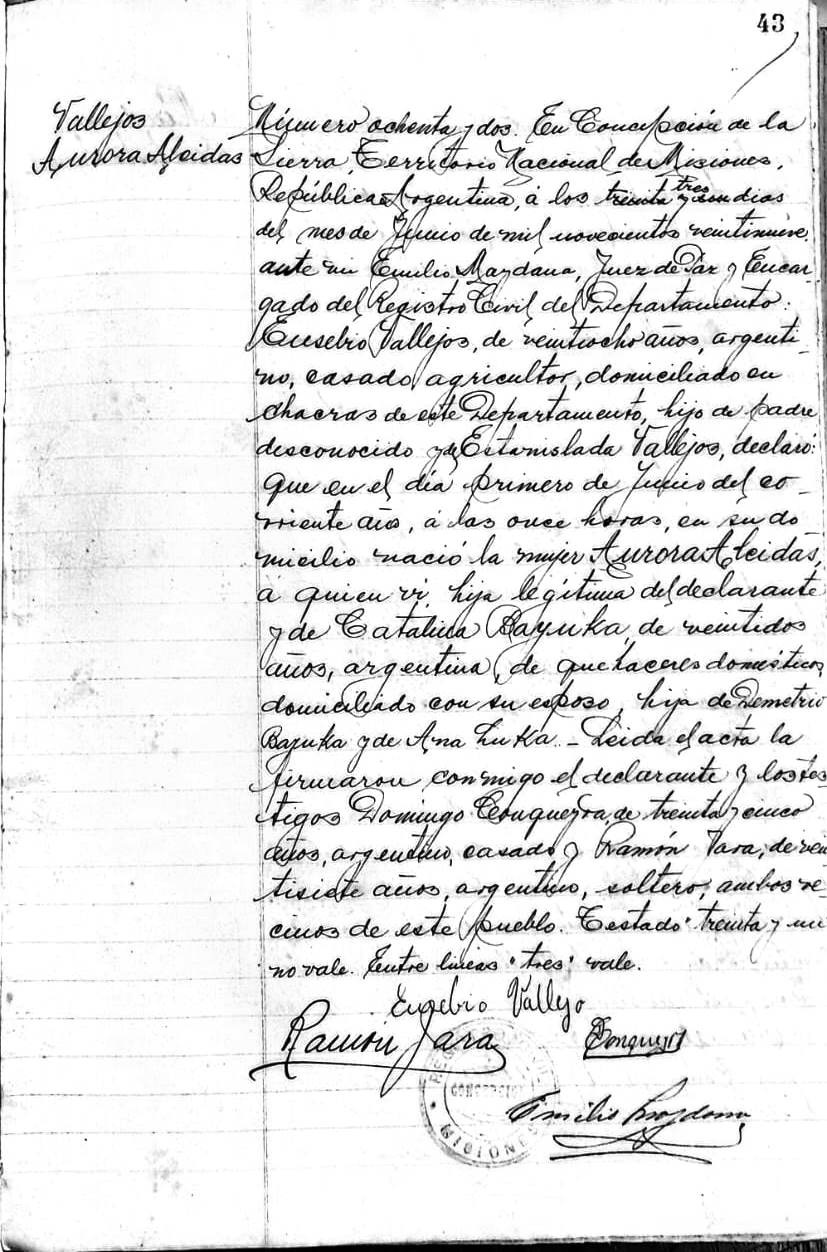 43
Vallejos
Aurora Alcidas
Número ochenta y dos. En Concepción de la
Sierra, Territorio Nacional de Misiones,
República Argentina, á los treinta y un dias
tres
del mes de Junio de mil novecientos veintinueve,
ante mi Emilio Maydana, Juez de Paz y Encar-
gado del Registro Civil del Departamento:
Eusebio Vallejos, de veintiocho años, argenti-
no, casado, agricultor, domiciliado en
chacras de este Departamento, hijo de padre
desconocido y de Estanislada Vallejos, declaró:
Que en el día primero de Junio del co-
rriente año, á las once horas, en su do
micilio nació la mujer Aurora Alcidas,
a quien vi, hija legítima del declarante
y de Catalina Bayuka, de veintidos
años, argentina, de quehaceres domésticos,
domiciliado con su esposo, hija de Demetrio
Bajuka y de Ana Luka. - Leida el acta la
firmaron conmigo el declarante y los tes
tigos Domingo Conqueyra, de treinta y cinco
años, argentino, casado y Ramón Jara, de vein
tisiete años, argentino, soltero, ambos ve-
cinos de este pueblo. Testado "treinta y un"
no vale. Entre lineas "tres" vale.
Eusebio Vallejo
Ramón Jara
Emilio Maydana
MISIONES